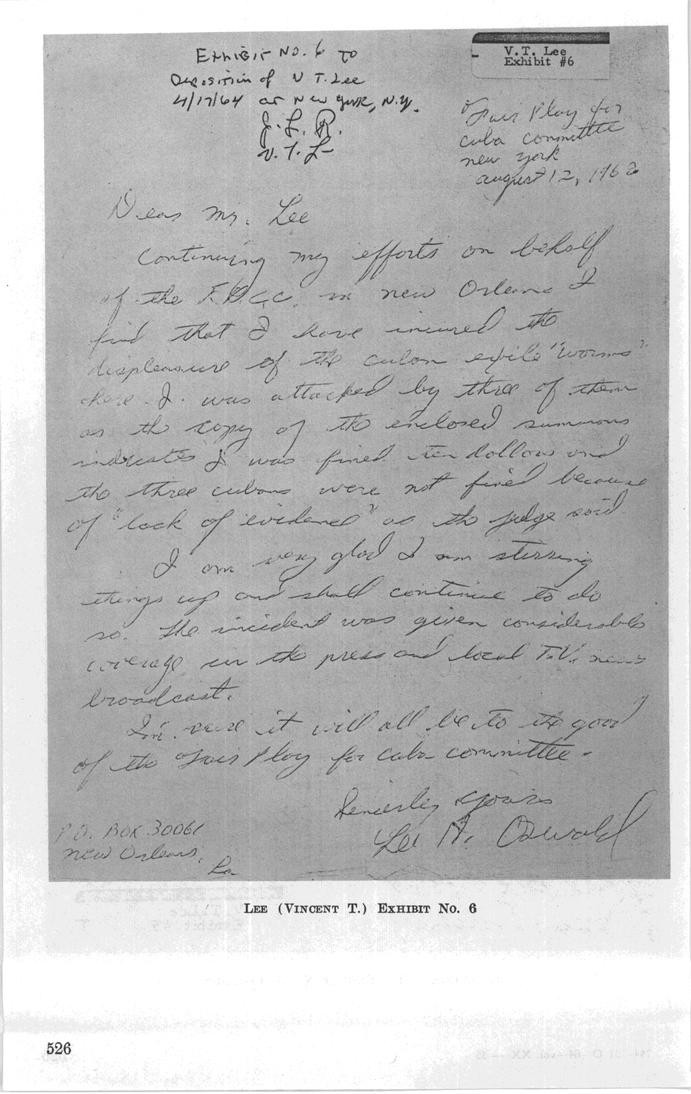 V. T. Lee
Exhibit #6
Exhibit No. 6 to
Deposition of V T. Lee
4/17/64 at New York, N.Y.
J. L. R.
V. T. L
"Fair Play for
cuba committee
new york
august 12, 1963
Dear Mr. Lee
Continuing my efforts on behalf
of the F.P.C.C. in new Orleans I
find that I have incured the
displeasure of the cuban exile "worms"
here. I was attacked by three of them
as the copy of the enclosed summons
indicates I was fined ten dollars and
the three cubans were not fined because
of "lack of evidence" as the judge said
I am very glad I am stirring
things up and shall continue to do
so. The incident was given considerable
coverage in the press and local T.V. news
broadcast.
I'm sure it will all be to the good
of the "Fair Play for cuba committee.
Sincerley yours
Lee H. Oswald
P.O. BOX 30061
New Orleans,
La
LEE (VINCENT T.) EXHIBIT NO. 6
526